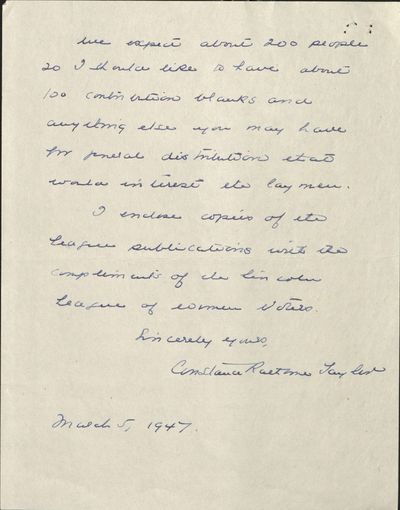 We expect about 200 people
so I should like to have about
100 contribution blanks and
anything else you may have
for general distribution that
would interest the laymen.
I enclose copies of the
League publications with the
compliments of the Lincoln
League of Women Voters.
Sincerely yours,
Constance Taylor
March 5, 1947.